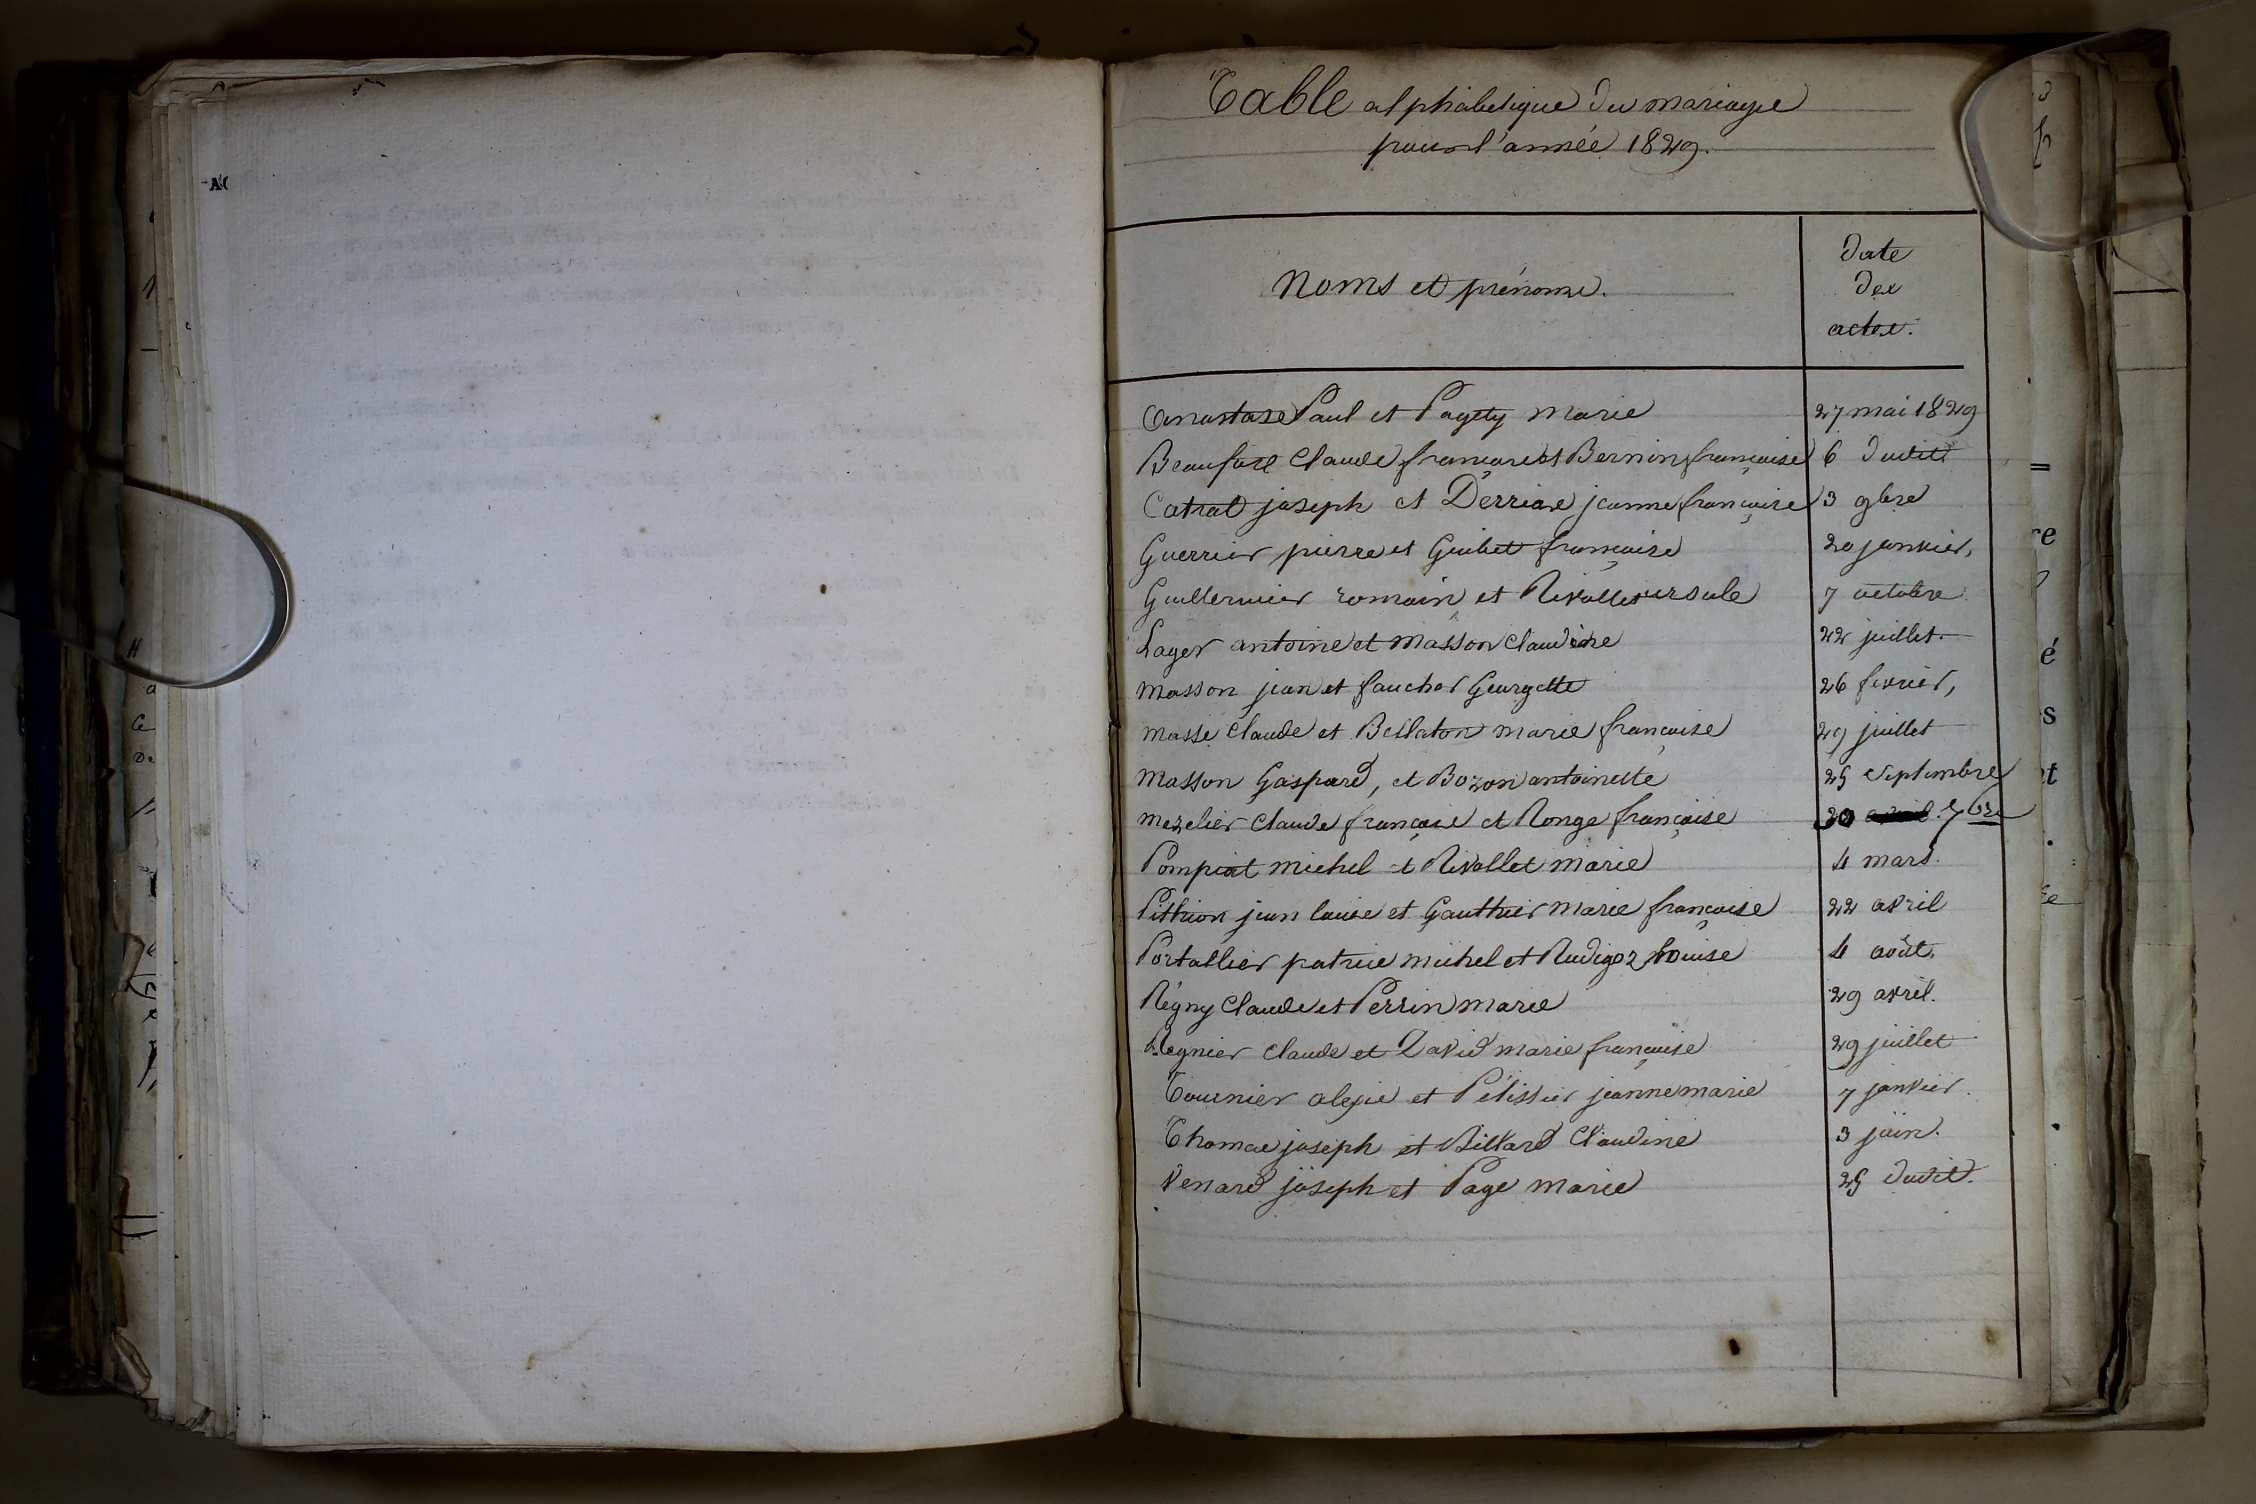 Table alphabetique du mariage
pour l'année 1829.
Noms et prénoms.
Date
des
actes.
Anastase Paul et Pagety Marie
27 mai 1829
Beaufort Claude françois et Bernin françoise
6 dudit
Catral joseph et Derrias jeanne françoise
3 9bre
Guerrier pierre et Guibet françoise
20 janvier,
Guillermier romain et Rivollet ursule
7 octobre
Lager antoine et Masson Claudine
22 juillet.
Masson jean et faucher Georgette
26 fevrier,
Massé Claude et Bellaton marie françoise
29 juillet
Masson Gaspard, et Bozon antoinette
25 Septembre
Mezelier Claude françois et Ronge françoise
30 7bre
Pompiat michel et Rivollet marie
4 mars.
Pithion jean louis et Gauthier Marie françoise
22 avril
Portallier patrice michel et Rudigoz Louise
4 août.
Régny Claude et Perrin marie
29 avril.
Regnier Claude et David marie françoise
29 juillet
Tournier alexis et Pélissier jeanne marie
7 janvier.
Thomas joseph et Billard Claudine
3 juin.
Venard joseph et Page marie
25 dudit.